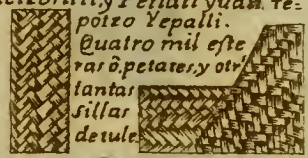 y Petlatl yuan. te=
potzo Yepalli.
Quatro mil este
ras õ.petates,y otr
tantas
sillas
de tule